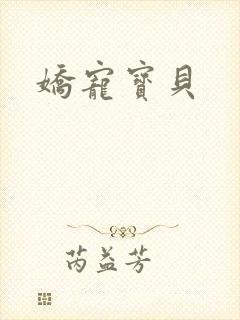 嬌寵寶貝
芮益芳